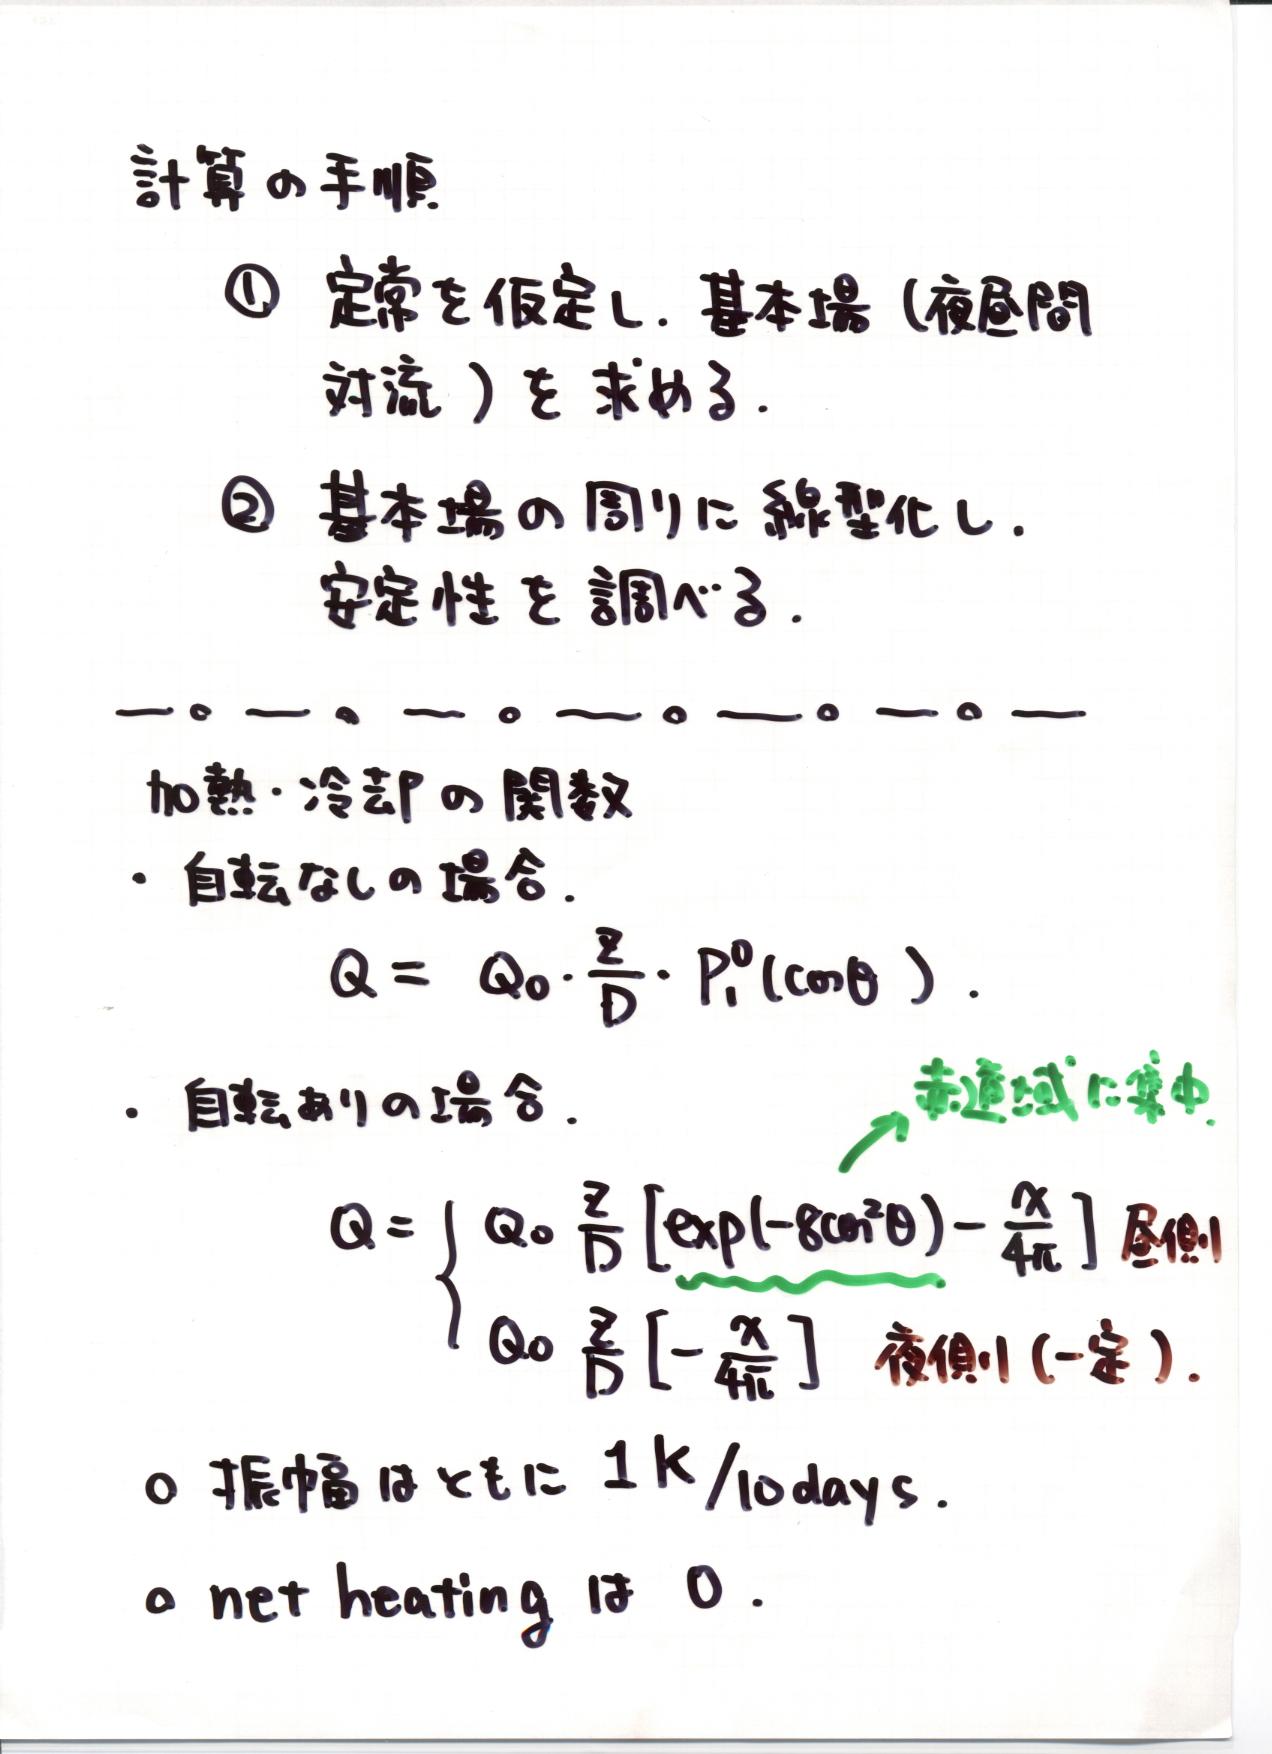 計算の手順
① 定常を仮定し．基本場（夜昼間
対流）を求める．
② 基本場の周りに線型化し．
安定性を調べる．
加熱・冷却の関数
・自転なしの場合．
Q = Q₀・z/D・P₁⁰(cosθ)．
・自転ありの場合．
赤道域に集中．
Q = { Q₀ z/D [exp(-8cos²θ) - x/4π] 昼側
Q₀ z/D [- x/4π] 夜側（一定）．
○ 振幅はともに 1K/10days．
○ net heating は 0．